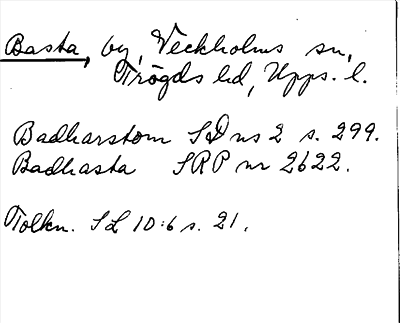 Basta, by, Veckholms sn,
Trögds hd, Upps. l.
Badharstom SD ns 2 s. 299.
Badhasta SRP nr 2622.
Tolkn. SL 10:6 s. 21.